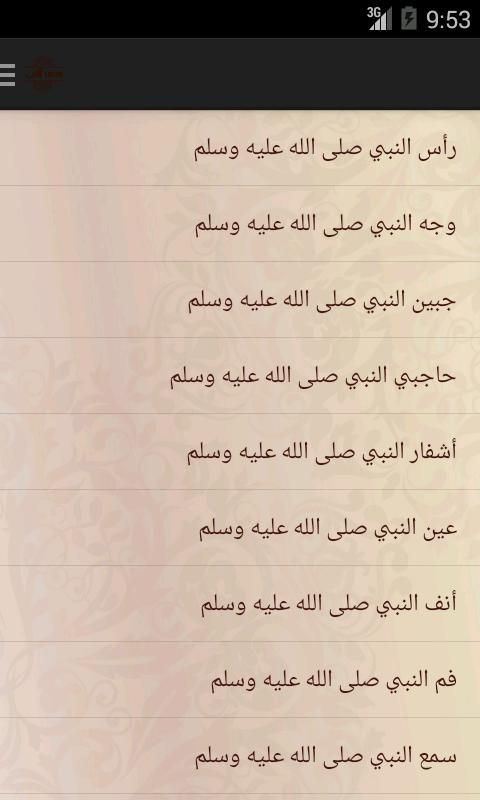 3G 9:53
رأس النبي صلى الله عليه وسلم
وجه النبي صلى الله عليه وسلم
جبين النبي صلى الله عليه وسلم
حاجبي النبي صلى الله عليه وسلم
أشفار النبي صلى الله عليه وسلم
عين النبي صلى الله عليه وسلم
أنف النبي صلى الله عليه وسلم
فم النبي صلى الله عليه وسلم
سمع النبي صلى الله عليه وسلم